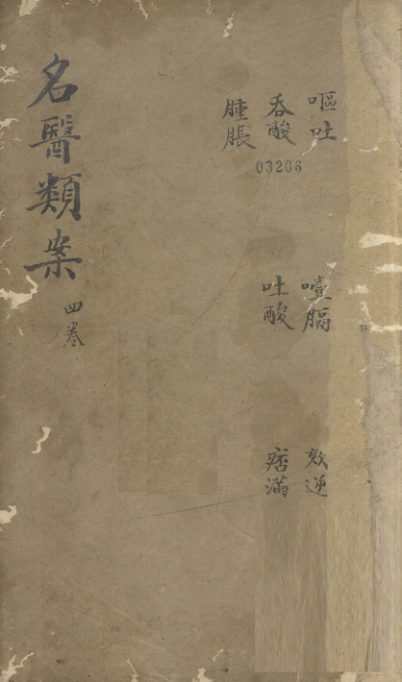 嘔吐 噎膈 欬逆
吞酸 吐酸 痞滿
腫脹
名醫類案 四卷
03206